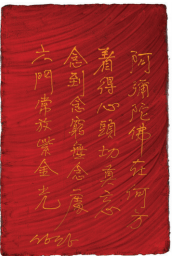 阿彌陀佛在何方
着得心頭切莫忘
念到念窮無念處
六門常放紫金光